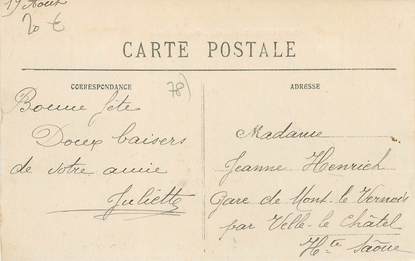 19 Août
20 €
CARTE POSTALE
CORRESPONDANCE
78)
ADRESSE
Bonne fête
Doux baisers
de votre amie
Juliette
Madame
Jeanne Henrich
Gare de Mont-le Vernois
par Velle-le Châtel
Hte Saône